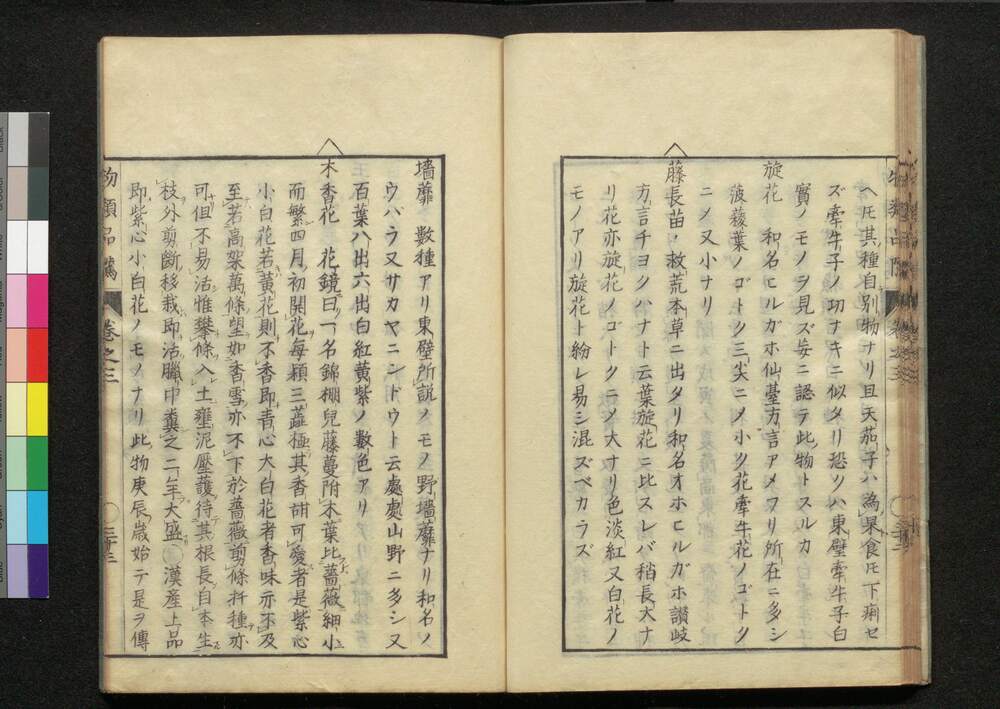 ヘ𪜈其種自別物ナリ且天茄子ハ為果食𪜈下痢セ
ズ牽牛子ノ功ナキニ似タリ恐ツハ東壁牽牛子白
實ノモノヲ見ズ妄ニ認テ此物トスルカ
旋花 和名ヒルガホ仙臺方言アメフリ所在ニ多シ
菠薐葉ノゴトク三尖ニメ小ク花牽牛花ノゴトク
ニメ又小ナリ
藤長苗 救荒本草ニ出タリ和名オホヒルガホ讃岐
方言チヨクハナト云葉旋花ニ比スレバ稍長大ナ
リ花亦旋花ノゴトクニメ大ナリ色淡紅又白花ノ
モノアリ旋花ト紛レ易シ混ズベカラズ
墻蘼 數種アリ東壁所説ノモノ野墻蘼ナリ和名ノ
ウバラ又サカヤニンドウト云處處山野ニ多シ又
百葉八出六出白紅黄紫ノ數色アリ
木香花 花鏡曰一名錦棚兒藤蔓附木葉比薔薇細小
而繁四月初開花每穎三蘂極其香甜可愛者是紫心
小白花若黄花則不香即青心大白花者香味亦不及
至若高架萬條望如香雪亦不下於薔薇剪條扦種亦
可但不易活惟攀條入土壅泥壓護待其根長自本生
枝外剪斷移栽即活臘中糞之二年大盛 〇漢産上品
即紫心小白花ノモノナリ此物庚辰歳始テ是ヲ傳
物類品隲 巻之三